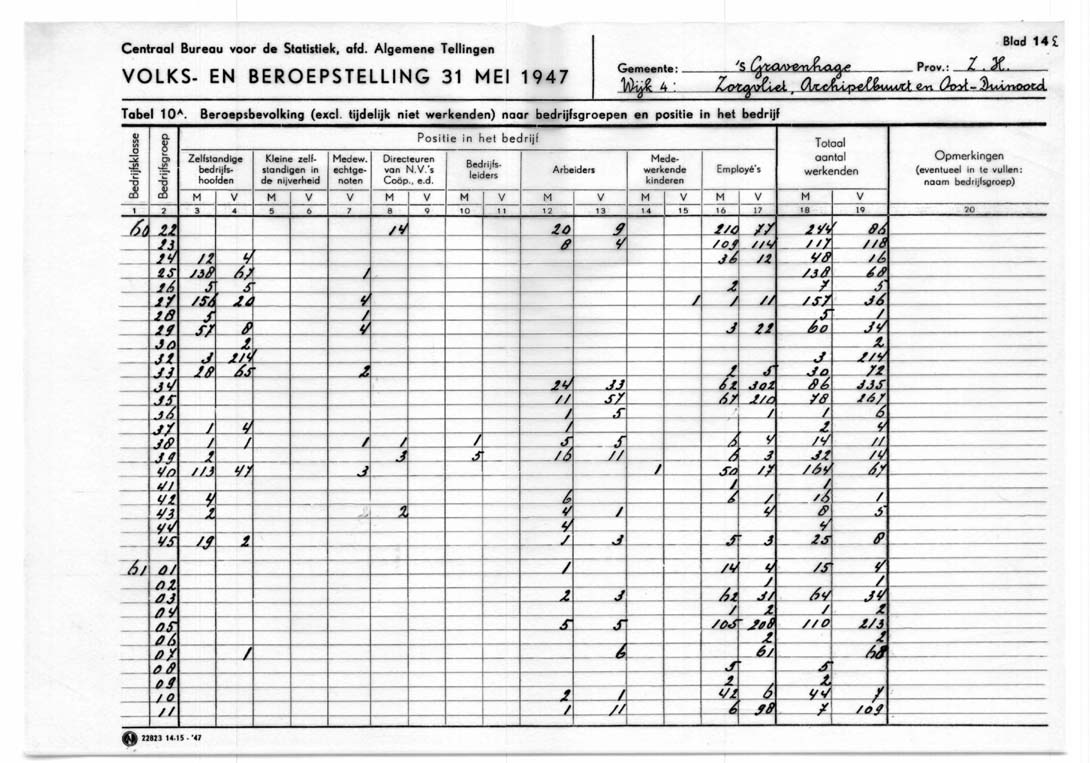 Blad 14 c
Centraal Bureau voor de Statistiek, afd. Algemene Tellingen
VOLKS- EN BEROEPSTELLING 31 MEI 1947
Gemeente: 's Gravenhage Prov.: Z. H.
Wijk 4: Zorgvliet, Archipelbuurt en Oost-Duinoord
Tabel 10A. Beroepsbevolking (excl. tijdelijk niet werkenden) naar bedrijfsgroepen en positie in het bedrijf
Bedrijfsklasse Bedrijfsgroep Positie in het bedrijf Totaal aantal werkenden Opmerkingen (eventueel in te vullen: naam bedrijfsgroep)
Zelfstandige bedrijfs-hoofden Kleine zelf-standigen in de nijverheid Medew. echtge-noten Directeuren van N.V.'s Coöp., e.d. Bedrijfs-leiders Arbeiders Mede-werkende kinderen Employé's
M V M V V M V M V M V M V M V M V
1 2 3 4 5 6 7 8 9 10 11 12 13 14 15 16 17 18 19 20
60 22 14 20 9 210 77 244 86
23 8 4 109 114 117 118
24 12 4 36 12 48 16
25 138 67 1 138 68
26 5 5 2 7 5
27 156 20 4 1 1 11 157 36
28 5 1 5 1
29 57 8 4 3 22 60 34
30 2 2
32 3 214 3 214
33 28 65 2 2 5 30 72
34 24 33 62 302 86 335
35 11 57 67 210 78 267
36 1 5 1 1 6
37 1 4 1 2 4
38 1 1 1 1 1 5 5 6 4 14 11
39 2 3 5 16 11 6 3 32 14
40 113 47 3 1 50 17 164 67
41 1 1
42 4 6 6 1 16 1
43 2 2 4 1 4 8 5
44 4 4
45 19 2 1 3 5 3 25 8
61 01 1 14 4 15 4
02 1 1
03 2 3 62 31 64 34
04 1 2 1 2
05 5 5 105 208 110 213
06 2 2
07 1 6 61 68
08 5 5
09 2 2
10 2 1 42 6 44 7
11 1 11 6 98 7 109
N 22823 14-15 - '47